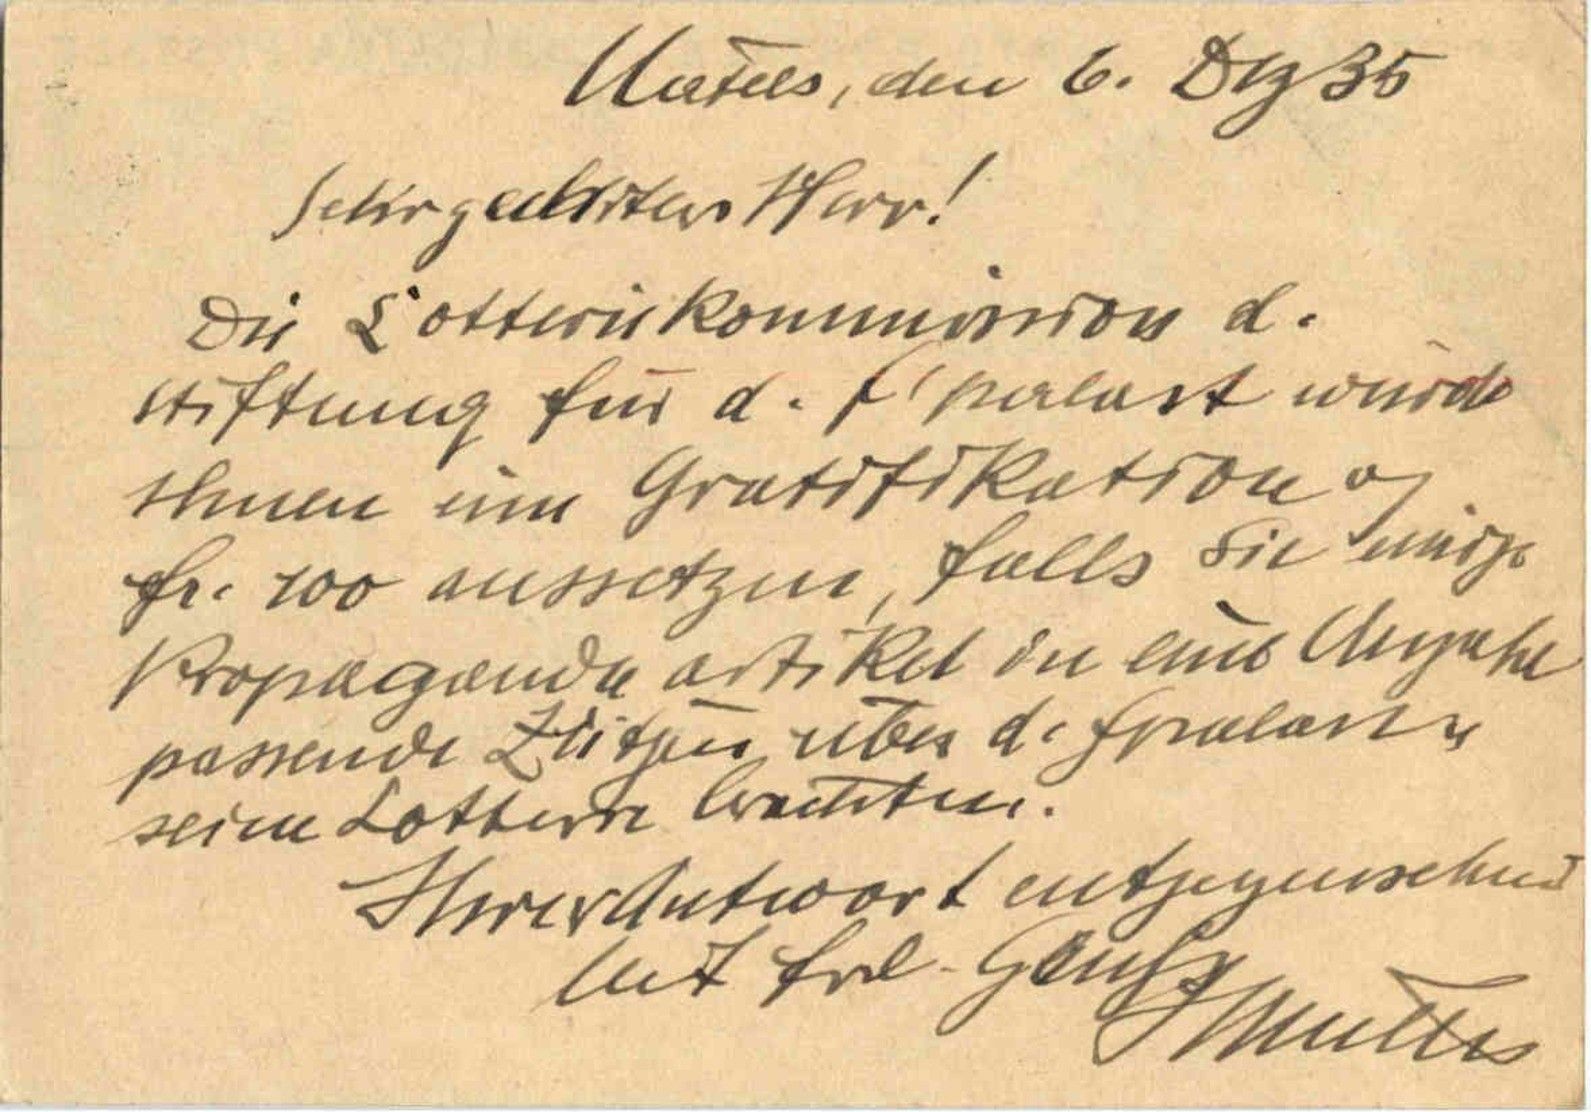 Naters, den 6. Dez 35
Sehr geehrter Herr!
Die Lotteriekommission d.
Stiftung für d. F'palast würde
Ihnen eine Gratifikation v
fr. 100 aussetzen, falls Sie einige
Propaganda artikel in eine Anzahl
passende Zeitgen über d. Fpalast u
seine Lotterie brächten.
Ihrer Antwort entgegensehend
Mit frdl. Gruss